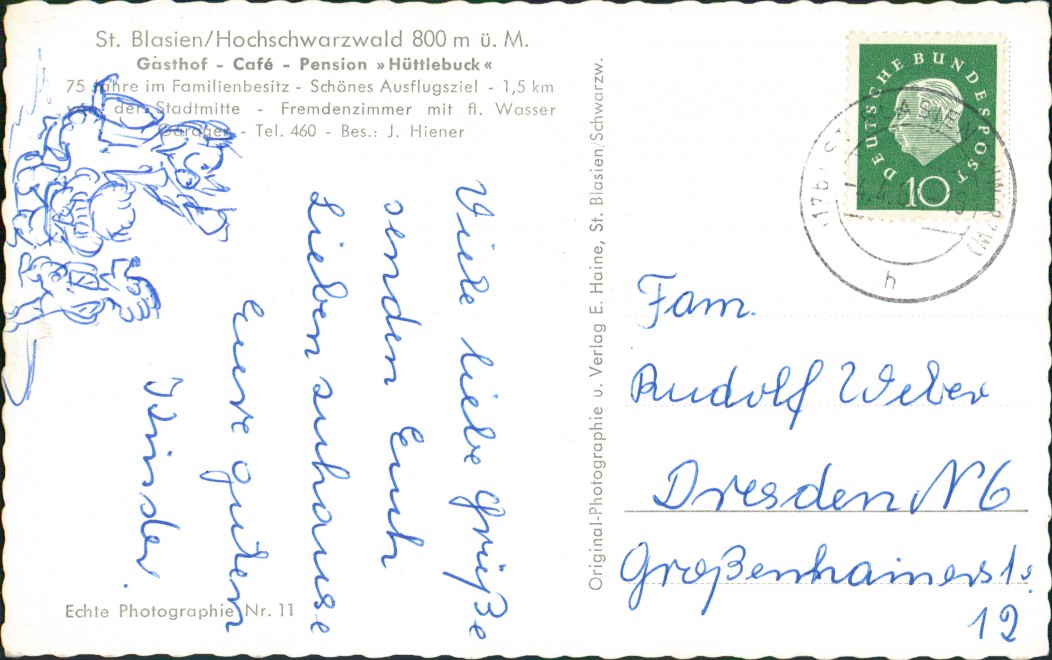 St. Blasien/Hochschwarzwald 800 m ü. M.
Gasthof - Café - Pension »Hüttlebuck«
75 Jahre im Familienbesitz - Schönes Ausflugsziel - 1,5 km
von der Stadtmitte - Fremdenzimmer mit fl. Wasser
Garagen - Tel. 460 - Bes.: J. Hiener
Viele liebe Grüße
senden Euch
Lieben zuhause
Eure guten
Kinder.
Echte Photographie Nr. 11
Original-Photographie u. Verlag E. Haine, St. Blasien/Schwarzw.
DEUTSCHE BUNDESPOST
10
h
Fam.
Rudolf Weber
Dresden N6
Großenhainers
12